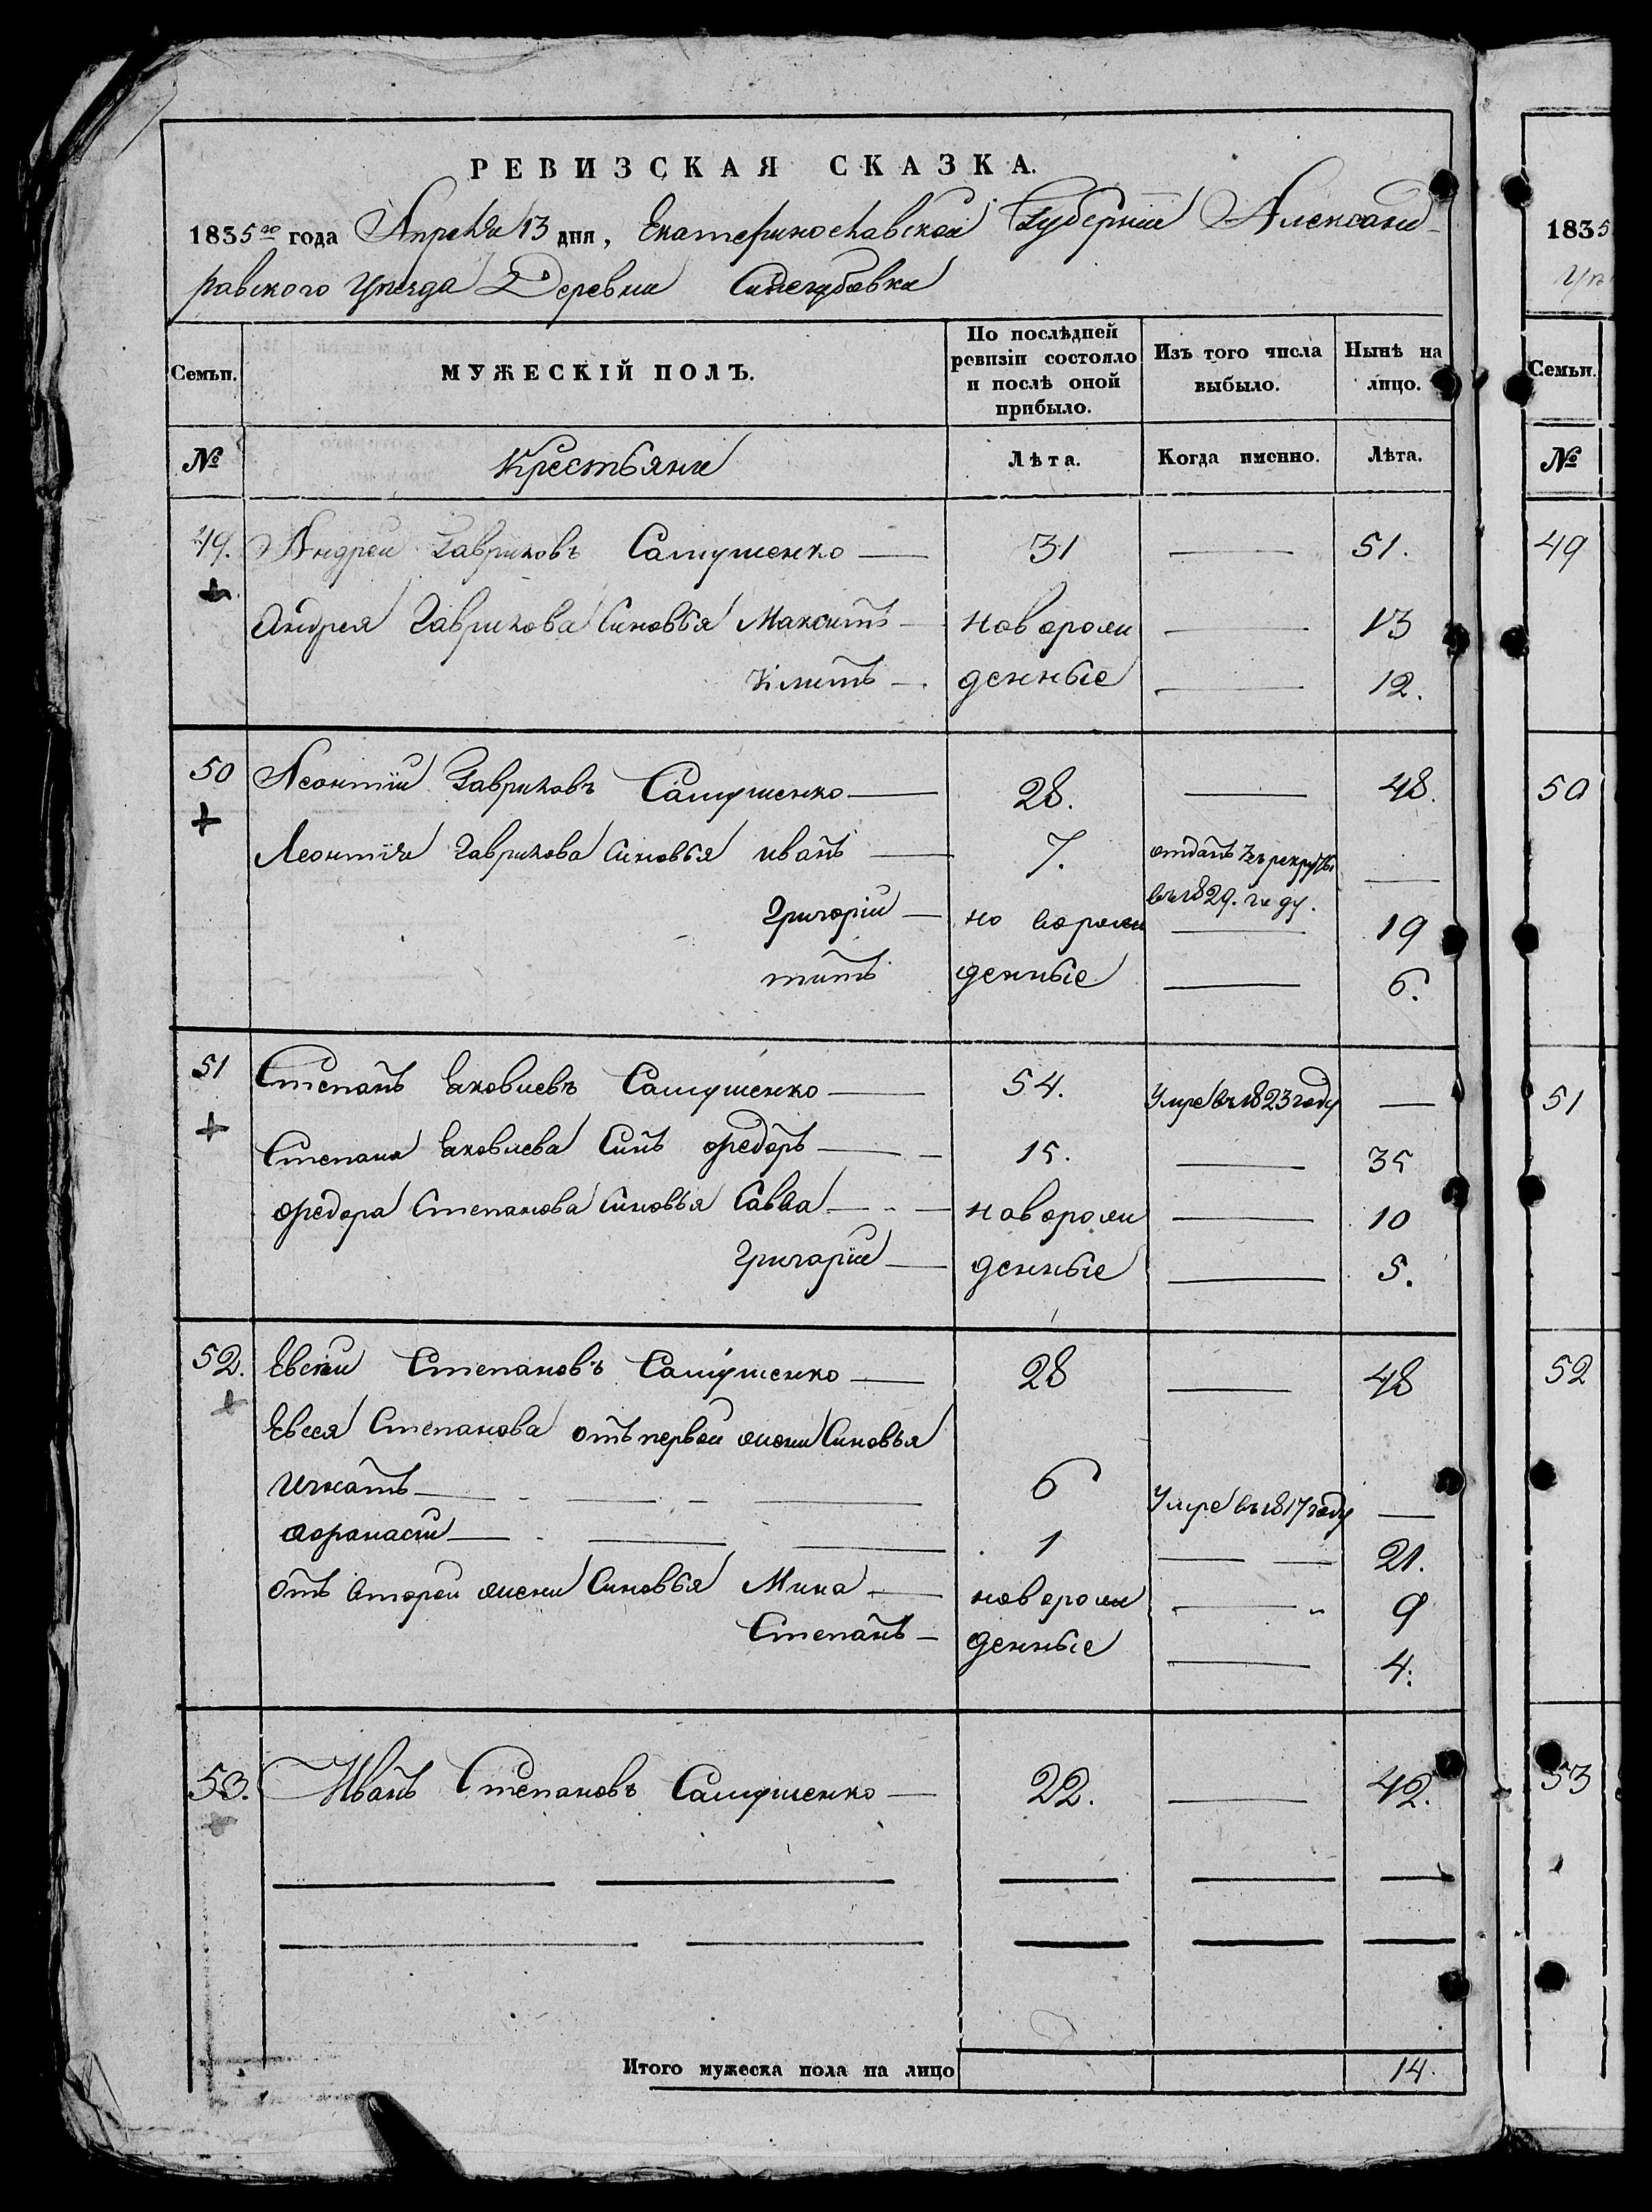 РЕВИЗСКАЯ СКАЗКА.
1835го года Апреля 13 дня, Екатеринославской Губернии Александ-
ровского уезда Деревни Синегубовки
Семьи. МУЖЕСКІЙ ПОЛЪ. По послѣдней ревизіи состояло и послѣ оной прибыло. Изъ того числа выбыло. Нынѣ на лицо.
№ Крестьяне Лѣта. Когда именно. Лѣта.
49. Андрей Гавриловъ Самушенко — 31 — 51.
Андрея Гаврилова Синовья Максимъ — новорож — 13
Климъ — денные — 12.
50 Леонтій Гавриловъ Самушенко — 28. — 48.
Леонтія Гаврилова синовья иванъ — 7. отданъ въ рекруты —
въ 1829. году.
Григорій — но ворож — 19
титъ денные — 6.
51 Степанъ Яковлевъ Самушенко — 54. Умре въ 1823 году —
Степана Яковлева Синъ Федоръ — 15. — 35
Федора Степанова Синовья Савва — новорож — 10
Григорій — денные — 5.
52. Евсей Степановъ Самушенко — 28 — 48
Евсея Степанова отъ первой жени Синовья
Игнатъ — 6 Умре въ 1817 году —
Афанасій — 1 — 21.
отъ второй жени Синовья Мина — новорож — 9
Степанъ — денные — 4.
53. Иванъ Степановъ Самушенко — 22. — 42.
Итого мужеска пола на лицо 14.
1835
Семьи.
№
49
50
51
52
53